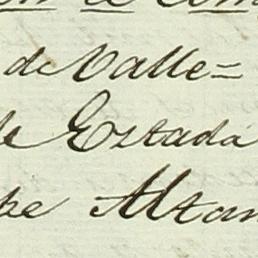 de Valle=
de Eztada
pe Altam